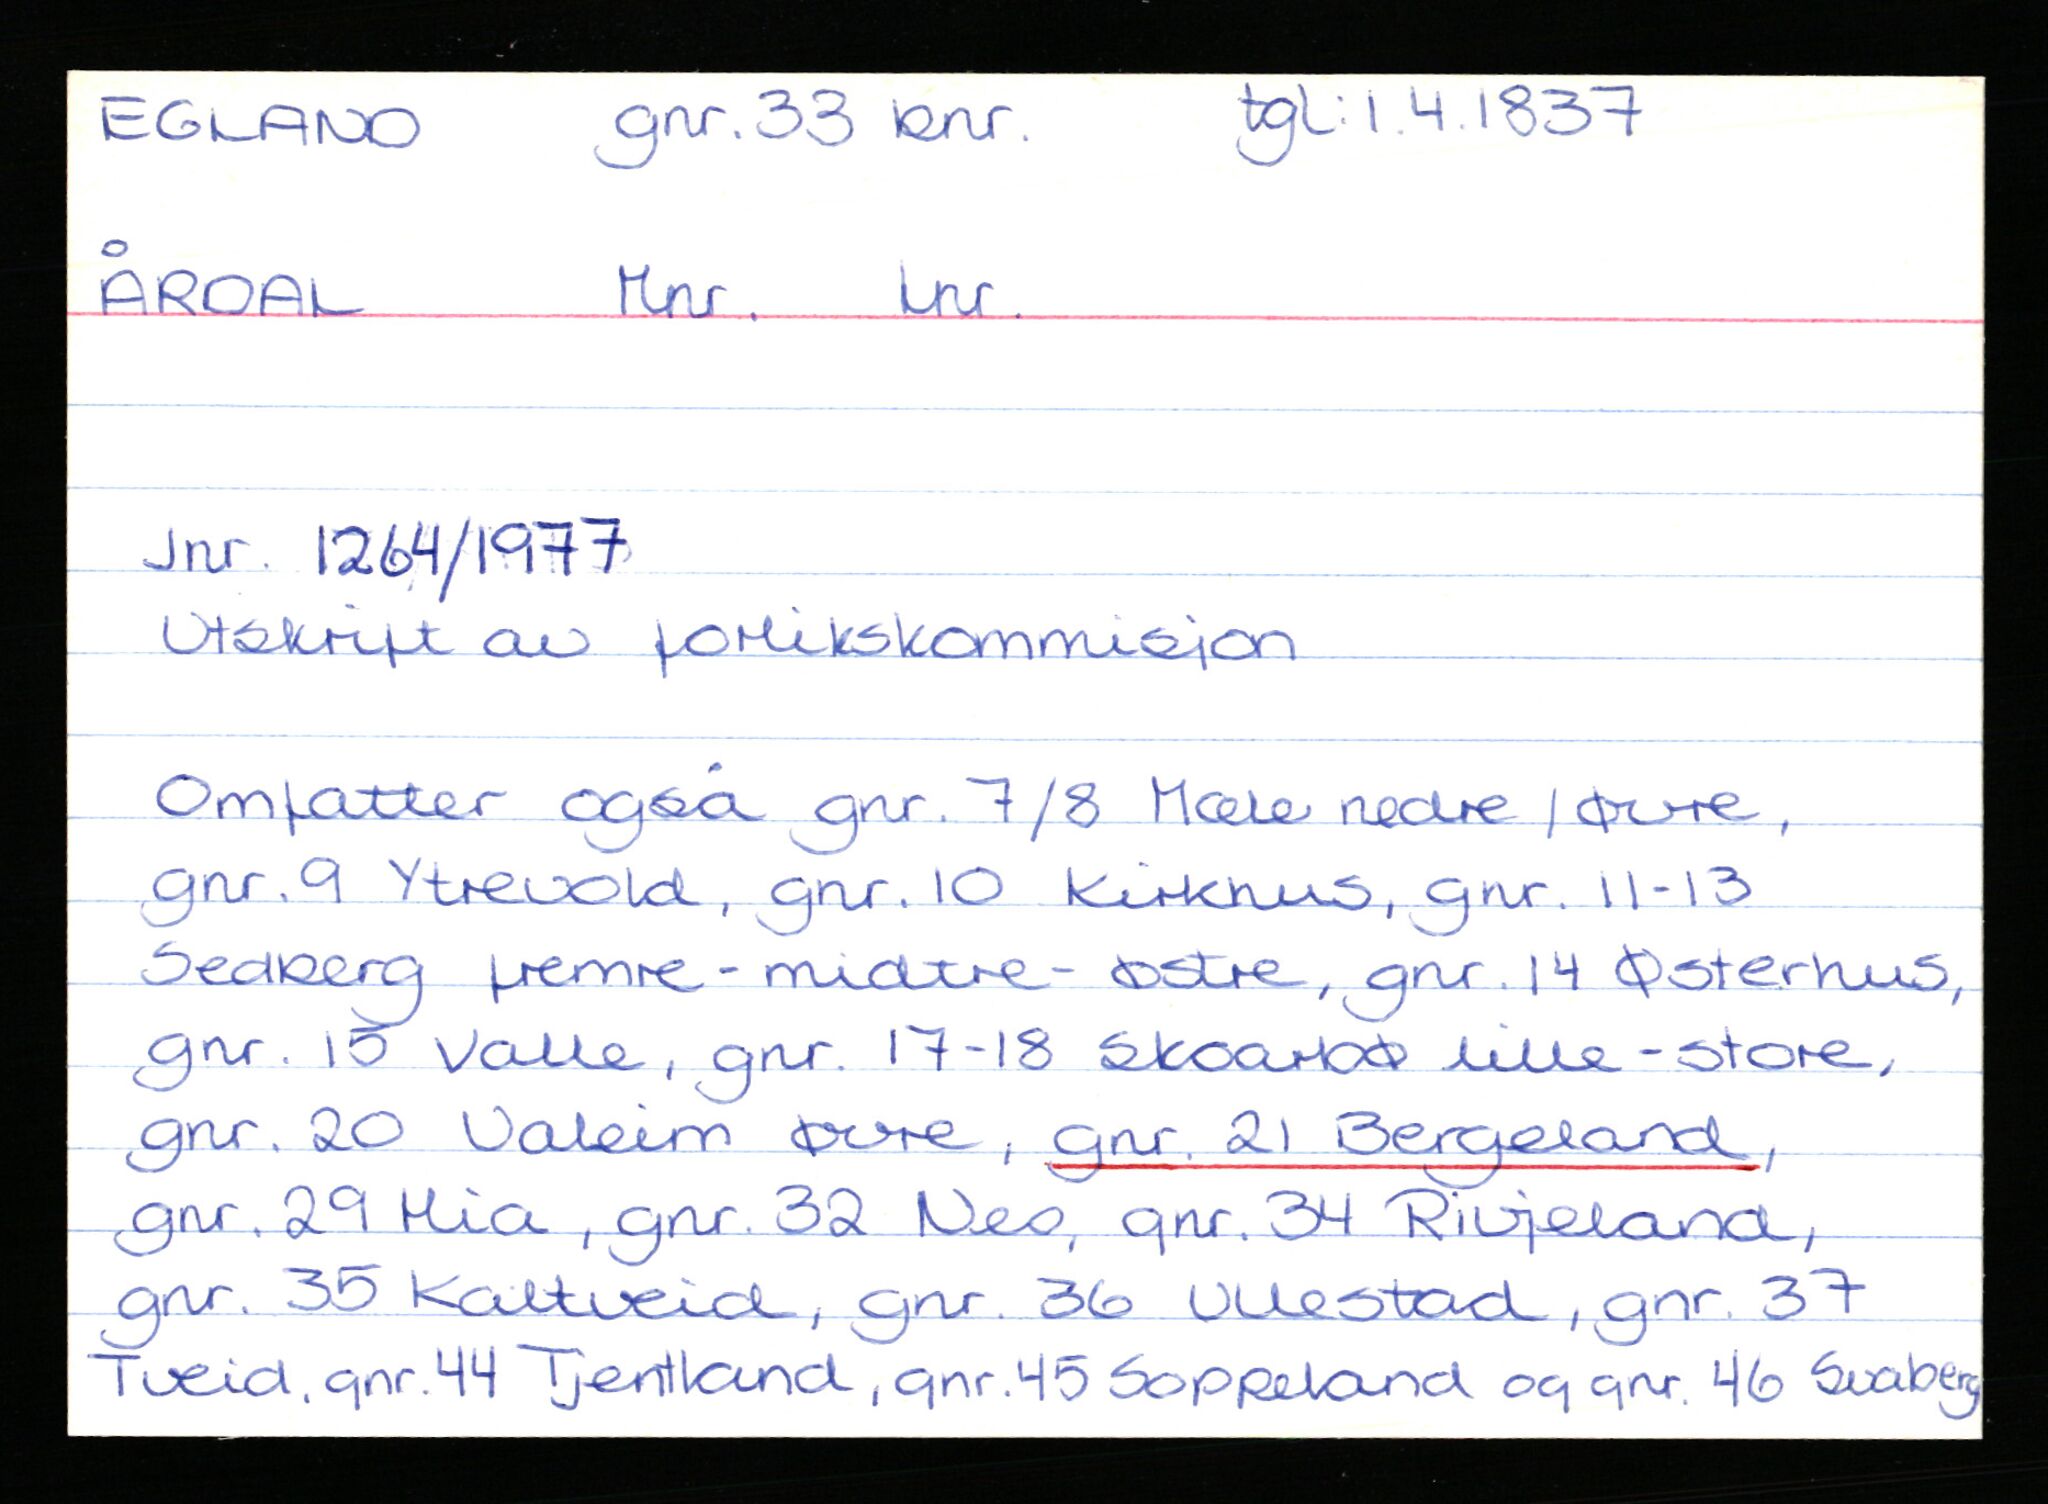 EGLAND gnr. 33 bnr. tgl: 1.4.1837
ÅRDAL Mnr. Lnr.
Jnr. 1264/1977
Utskrift av forlikskommisjon
Omfatter også gnr. 7/8 Mæle nedre / øvre,
gnr. 9 Ytrevold, gnr. 10 Kirkhus, gnr. 11-13
Sedberg fremre - midtre - østre, gnr. 14 Østerhus,
gnr. 15 Valle, gnr. 17-18 Skoarbø lille - store,
gnr. 20 Valeim øvre, gnr. 21 Bergeland,
gnr. 29 Mia, gnr. 32 Nes, gnr. 34 Rivjeland,
gnr. 35 Kaltveid, gnr. 36 Ullestad, gnr. 37
Tveid, gnr. 44 Tjentland, gnr. 45 Soppeland og gnr. 46 Svaberg